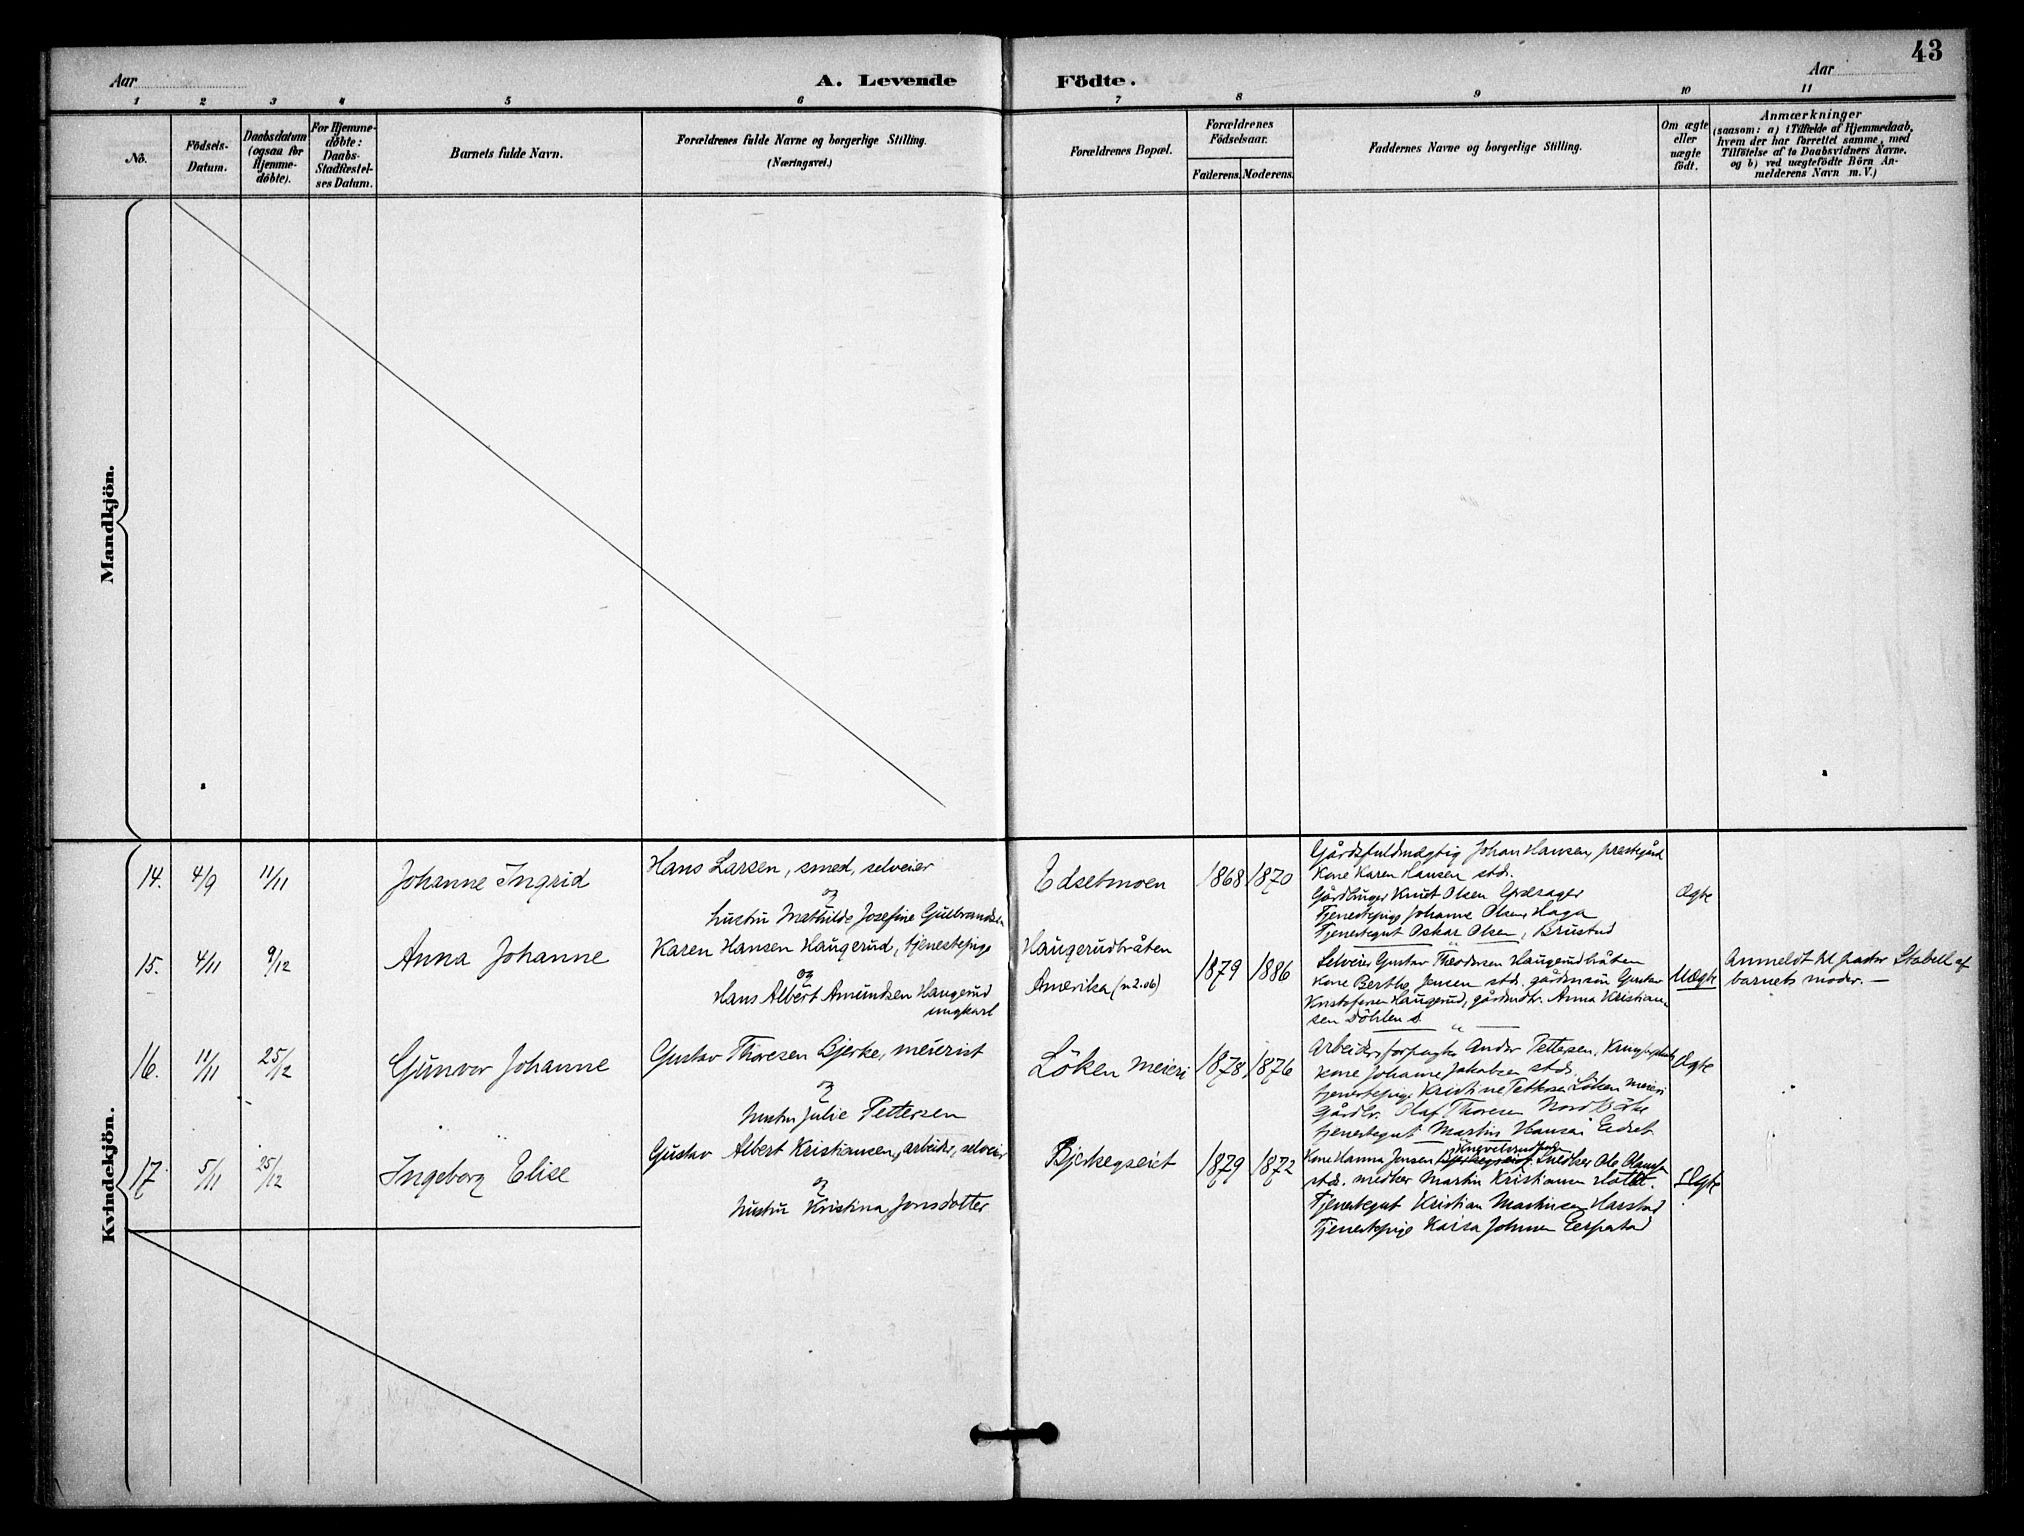 43
Aar
A. Levende Födte.
Aar
1 2 3 4 5 6 7 8 9 10 11
No.
Födsels-Datum.
Daabsdatum (ogsaa for Hjemme-döbte).
For Hjemme-döbte: Daabs-Stadfæstel-ses Datum.
Barnets fulde Navn.
Forældrenes fulde Navne og borgerlige Stilling.
(Næringsvei.)
Forældrenes Bopæl.
Forældrenes Födselsaar.
Faderens. Moderens.
Faddernes Navne og borgerlige Stilling.
Om ægte eller uægte födt.
Anmærkninger
(saasom: a) i Tilfælde af Hjemmedaab,
hvem der har forrettet samme, med
Tilföielse af to Daabsvidners Navne.
og b) ved uægtefödte Börn An-
melderens Navn m. V.)
Mandkjön.
Kvindekjön.
14. 4/9 11/11 Johanne Ingrid
Hans Larsen, smed, selveier
og
hustru Mathilde Josefine Gulbrandsen
Edsetmoen 1868 1870
Gårdsfuldmægtig Johan Hansen, prestegård
Kone Karen Hansen stds.
Gårdbruger Knut Olsen
Tjenestepige Johanne Olsen, Haga
Tjenestegut Oskar Olsen, Brustad
Ægte
15. 4/11 9/12 Anna Johanne
Karen Hansen Haugerud, tjenestepige
og
Hans Albert Amundsen Haugerud
ungkarl
Haugerudbråten
Amerika (n 2.06)
1879 1886
Selveier Gustav Theodorsen Haugerudbråten
Kone Berthe Jensen stds. gårdmsön Gustav
Kristofersen Haugerud, gårdmdtr. Anna Kristian-
sen Döhlen s.
Uægte
Anmeldt til pastor Stabell af
barnets moder. —
16. 11/11 25/12 Gunvor Johanne
Gustav Thoresen Bjerke, meierist
og
hustru Julie Pettersen
Löken meieri 1878 1876
Arbeider, forpagter Pettersen,
Kone Johanne Jakobsen stds.
tjenestepige Kristine Pettersen Löken meieri
Gårdbr. Olaf Thoresen Nord
tjenestegut Martin Hansen Edset
Ægte
17. 5/11 25/12 Ingeborg Elise
Gustav Albert Kristiansen, arbeider, selveier
og
hustru Kristina Jonsdotter
Bjerkegseiet 1879 1872
Kone Hanna Jensen Bjerkegseiet Snedker Ole
stds. Martin Kristiansen
Tjenestegut Kristian Martinsen Harstad
Tjenestepige Kaisa
Ægte